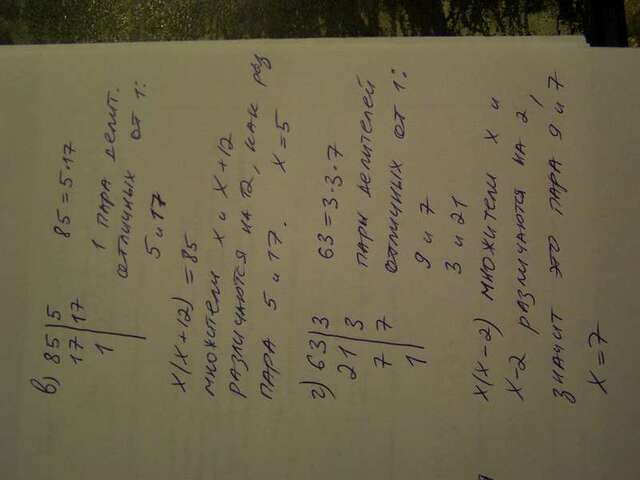 в) 85 | 5   85 = 5·17
17 | 17   1 пара делит.
1   отличных от 1:
5 и 17
x(x+12) = 85
множители x и x+12
различаются на 12, как раз
пара 5 и 17.   x = 5
г) 63 | 3   63 = 3·3·7
21 | 3   пары делителей
7 | 7   отличных от 1:
1   9 и 7
3 и 21
x(x-2) множители x и
x-2 различаются на 2,
значит это пара 9 и 7
x = 7